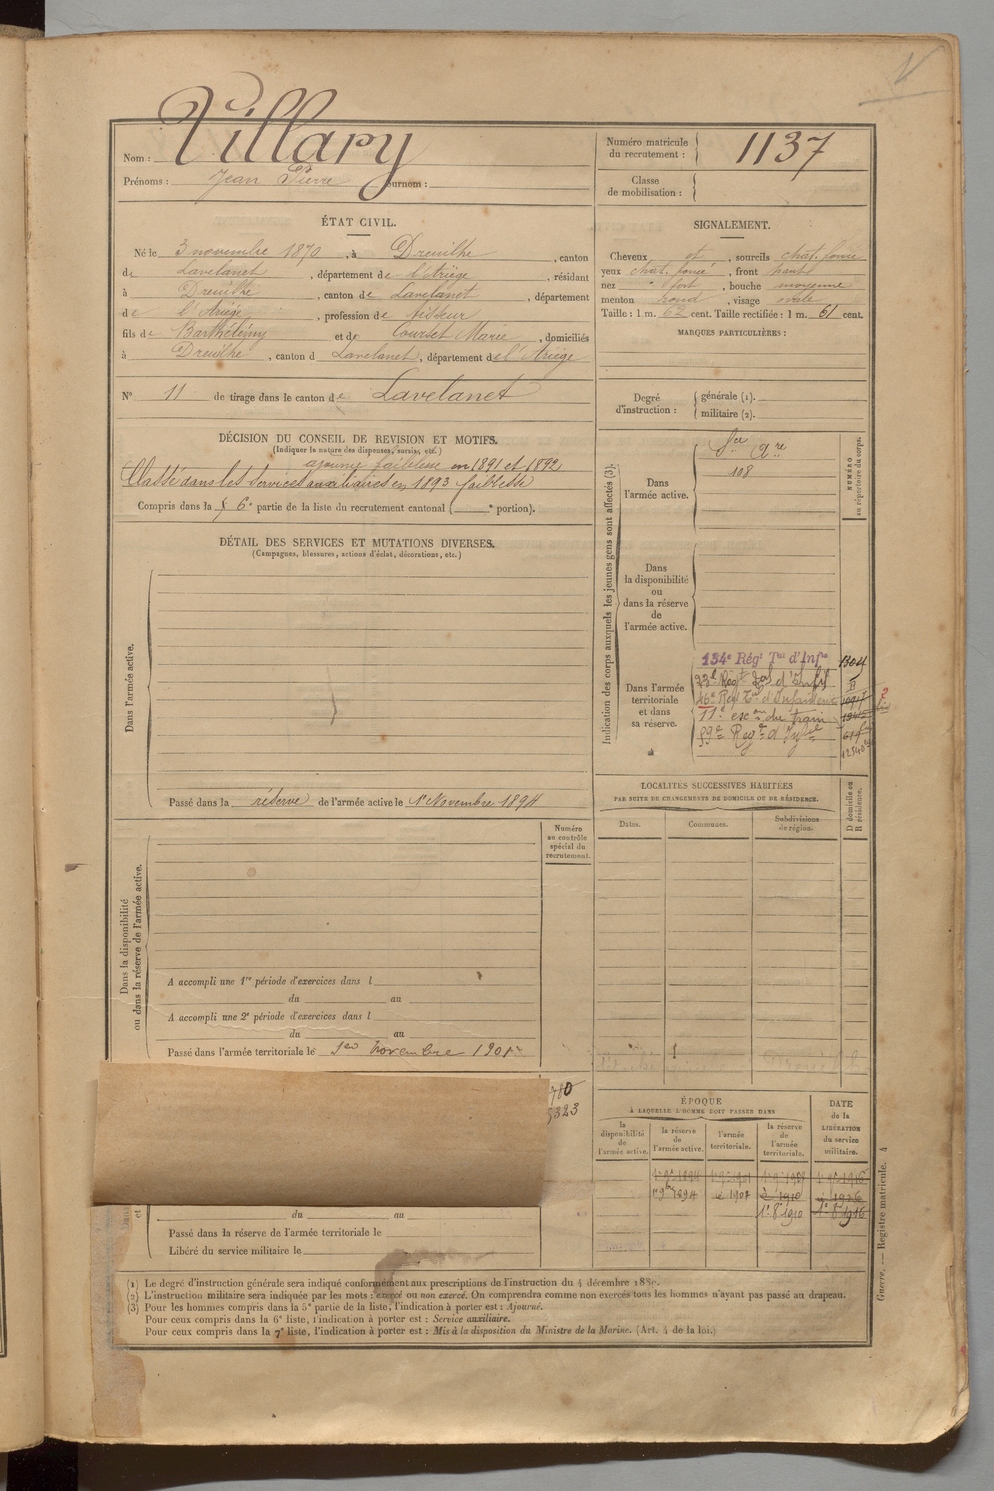 V
Nom : Villary
Prénoms : Jean Pierre Surnom :
Numéro matricule du recrutement : 1137
Classe de mobilisation :
ÉTAT CIVIL.
Né le 3 novembre 1870, à Dreuilhe, canton
de Lavelanet, département de l'Ariège, résidant
à Dreuilhe, canton de Lavelanet, département
de l'Ariège, profession de tisseur
fils de Barthélémy et de Courset Marie, domiciliés
à Dreuilhe, canton d Lavelanet, département de l'Ariège
N° 11 de tirage dans le canton de Lavelanet
SIGNALEMENT.
Cheveux et, sourcils chât. foncé
yeux chât. foncé, front haut
nez fort, bouche moyenne
menton rond, visage ovale
Taille : 1 m. 62 cent. Taille rectifiée : 1 m. 61 cent.
MARQUES PARTICULIÈRES :
Degré d'instruction : générale (1).
militaire (2).
DÉCISION DU CONSEIL DE REVISION ET MOTIFS.
(Indiquer la nature des dispenses, sursis, etc.)
ajourné faiblesse en 1891 et 1892
Classé dans les services auxiliaires en 1893 faiblesse
Compris dans la 6e partie de la liste du recrutement cantonal ( e portion).
DÉTAIL DES SERVICES ET MUTATIONS DIVERSES.
(Campagnes, blessures, actions d'éclat, décorations, etc.)
Dans l'armée active.
Passé dans la réserve de l'armée active le 1er Novembre 1894
Indication des corps auxquels les jeunes gens sont affectés (3).
NUMÉRO au répertoire du corps.
Dans l'armée active.
Sce Are
108
Dans la disponibilité ou dans la réserve de l'armée active.
Dans l'armée territoriale et dans sa réserve.
134e Régt Tal d'Infie 1304
Régt Tal d'Infie
Régt Tal d'Infanterie
11e escon du train
59e Regt d'Infie
LOCALITÉS SUCCESSIVES HABITÉES
PAR SUITE DE CHANGEMENTS DE DOMICILE OU DE RÉSIDENCE.
Dates. Communes. Subdivisions de région.
D domicile ou R résidence.
Numéro au contrôle spécial du recrutement.
Dans la disponibilité ou dans la réserve de l'armée active.
A accompli une 1re période d'exercices dans l
du au
A accompli une 2e période d'exercices dans l
du au
Passé dans l'armée territoriale le 1er Novembre 1901
ÉPOQUE
À LAQUELLE L'HOMME DOIT PASSER DANS
la disponibilité de l'armée active.
la réserve de l'armée active.
l'armée territoriale.
la réserve de l'armée territoriale.
DATE de la LIBÉRATION du service militaire.
1er 9bre 1894
1er 8 1910
et
du au
Passé dans la réserve de l'armée territoriale le
Libéré du service militaire le
(1) Le degré d'instruction générale sera indiqué conformément aux prescriptions de l'instruction du 4 décembre 1889.
(2) L'instruction militaire sera indiquée par les mots : exercé ou non exercé. On comprendra comme non exercés tous les hommes n'ayant pas passé au drapeau.
(3) Pour les hommes compris dans la 5e partie de la liste, l'indication à porter est : Ajourné.
Pour ceux compris dans la 6e liste, l'indication à porter est : Service auxiliaire.
Pour ceux compris dans la 7e liste, l'indication à porter est : Mis à la disposition du Ministre de la Marine. (Art. 4 de la loi.)
Guerre. — Registre matricule. 4